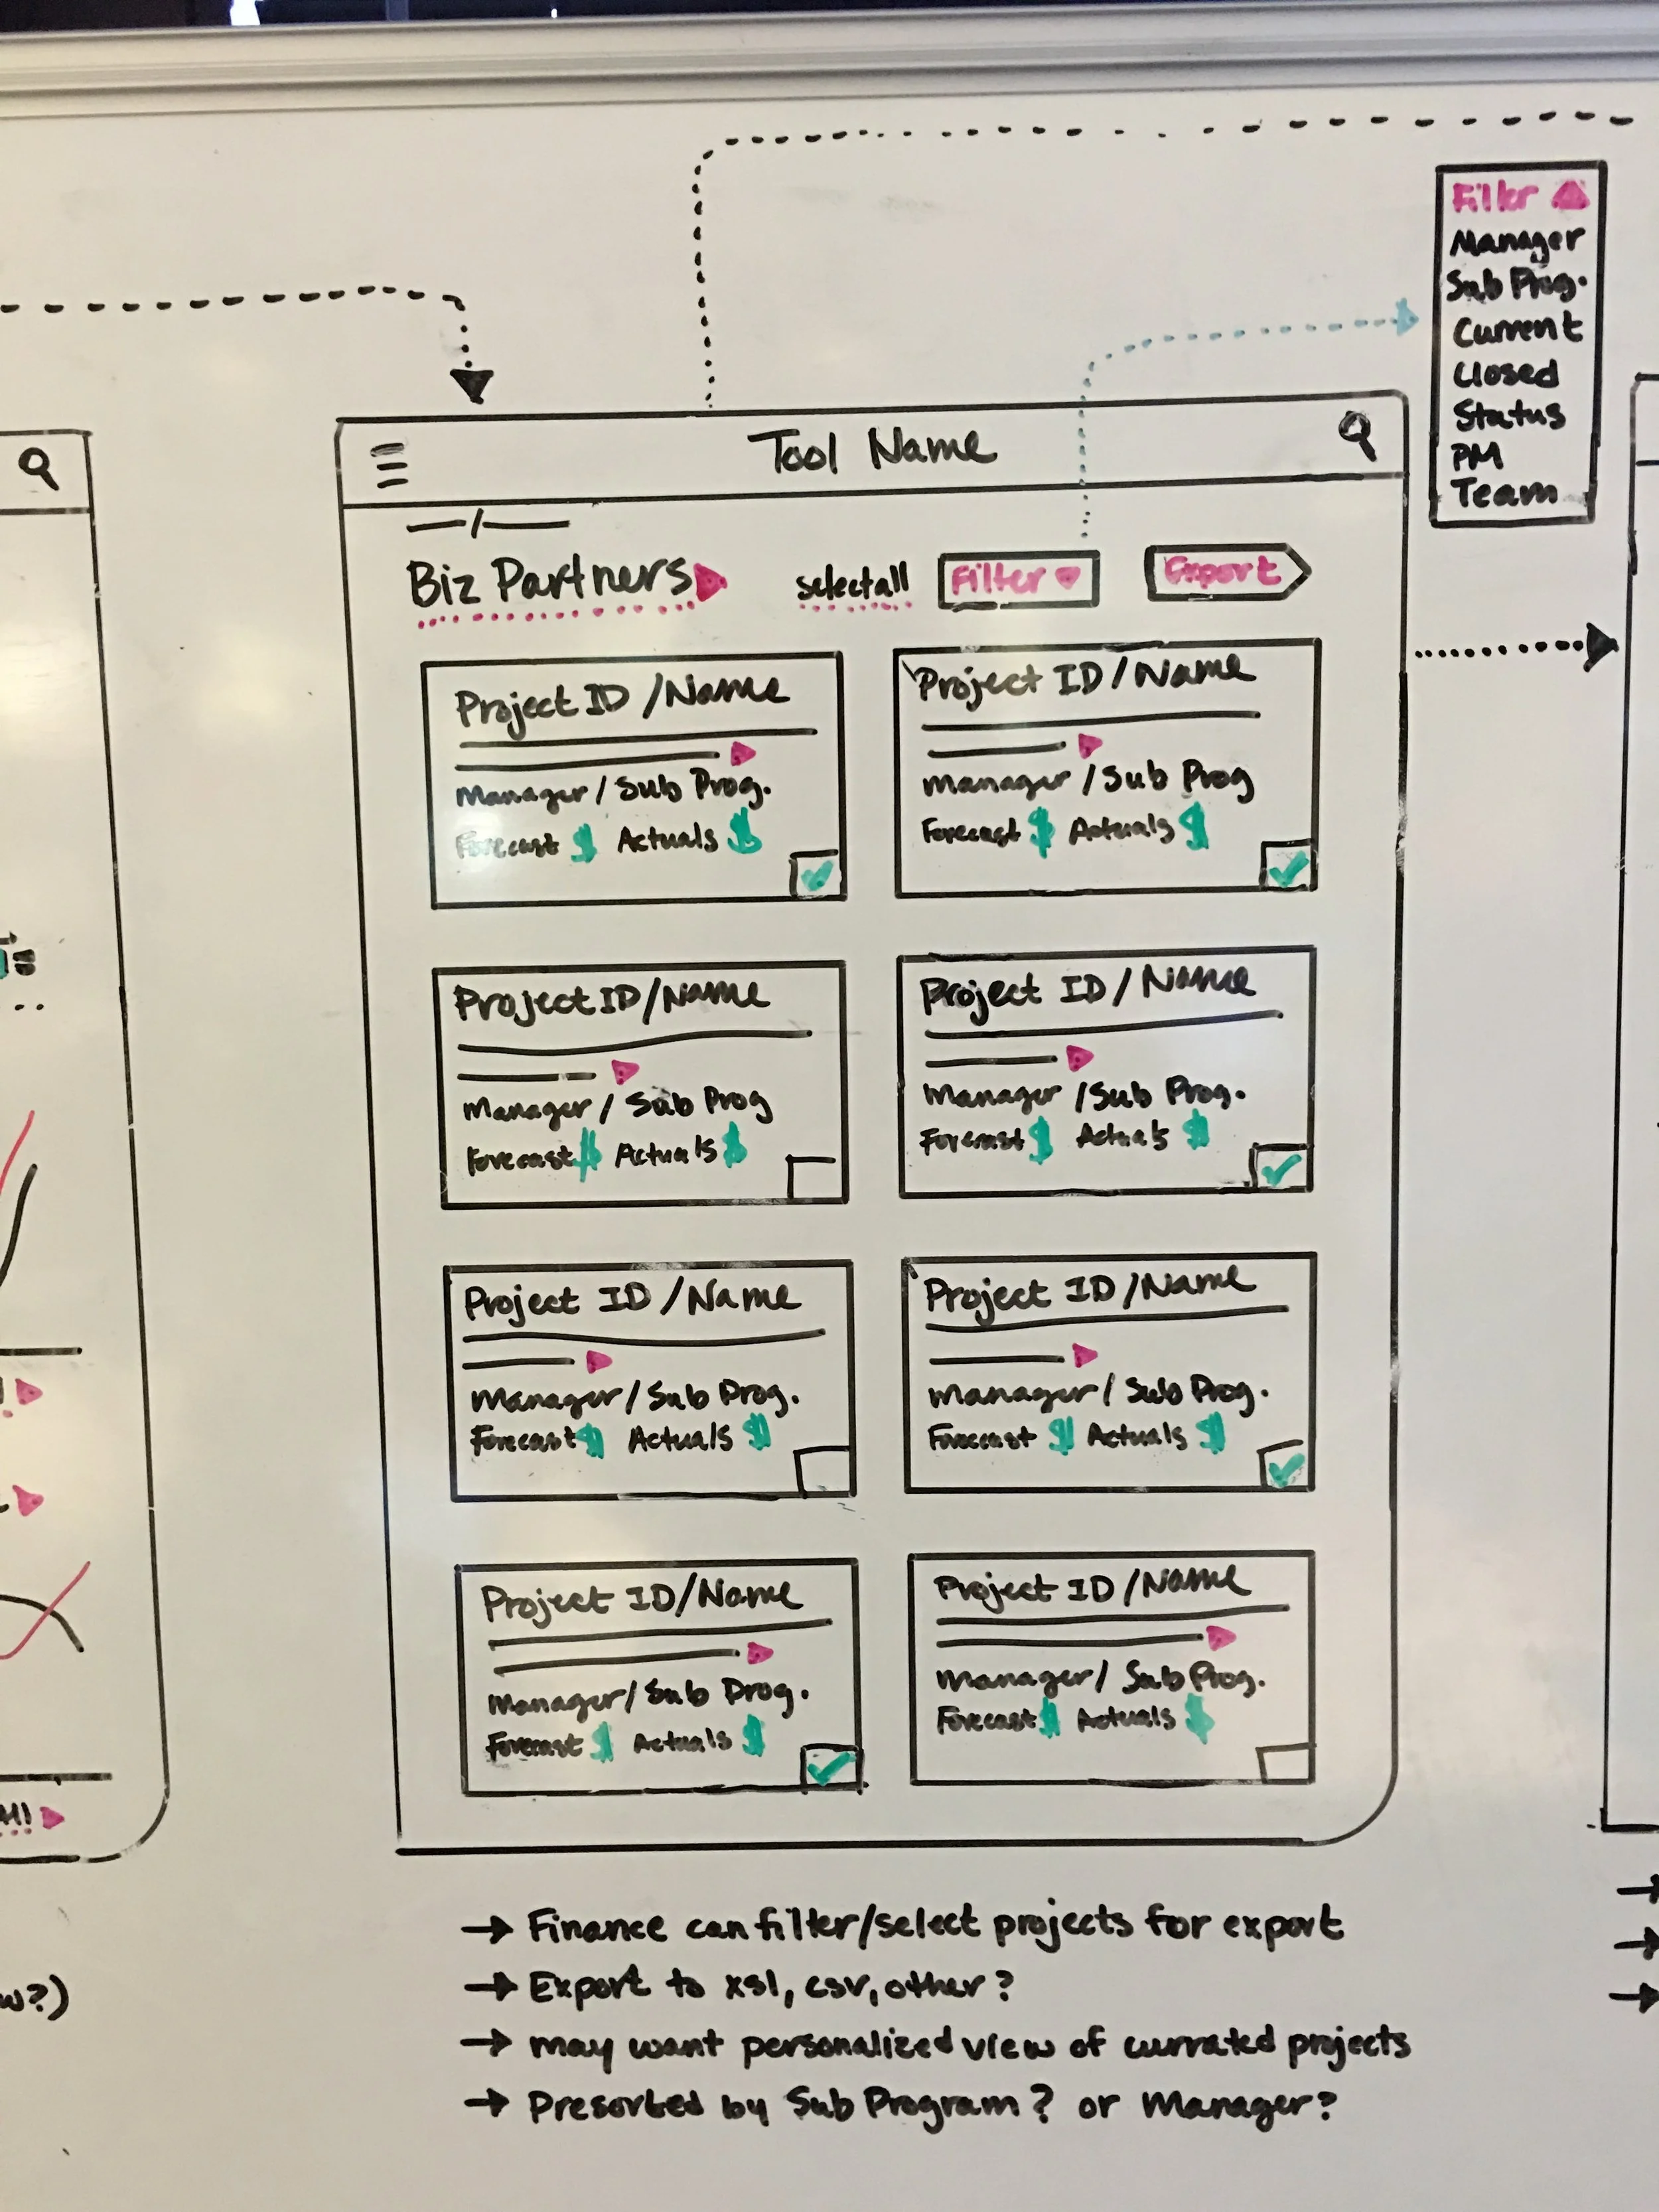 Filter
Manager
Sub Prog.
Current
Closed
Status
PM
Team
Tool Name
Biz Partners
select all
Filter
Export
Project ID/Name
Manager/Sub Prog.
Forecast $ Actuals $
Project ID/Name
Manager/Sub Prog
Forecast $ Actuals $
Project ID/Name
Manager/Sub Prog
Forecast $ Actuals $
Project ID/Name
Manager/Sub Prog.
Forecast $ Actuals $
Project ID/Name
Manager/Sub Prog.
Forecast $ Actuals $
Project ID/Name
Manager/Sub Prog.
Forecast $ Actuals $
Project ID/Name
Manager/Sub Prog.
Forecast $ Actuals $
Project ID/Name
Manager/Sub Prog.
Forecast $ Actuals $
→ Finance can filter/select projects for export
→ Export to xsl, csv, other?
→ may want personalized view of currated projects
→ Presorted by Sub Program? or Manager?
w?)